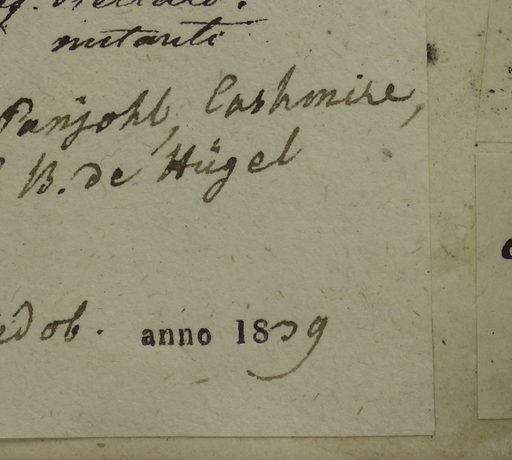 mutanti
Panjohl, Cashmire,
B. de Hügel
dob. anno 1839